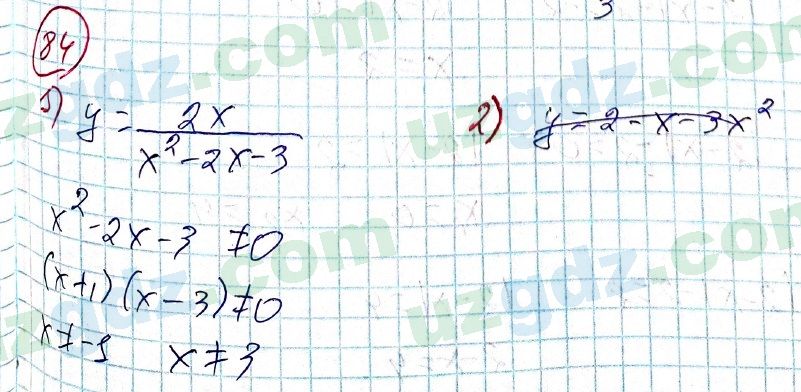 84
1) y = 2x / x² - 2x - 3
x² - 2x - 3 ≠ 0
(x+1)(x-3) ≠ 0
x ≠ -1 x ≠ 3
2) y = 2 - x - 3x²
3
uzgdz.com
uzgdz.com
uzgdz.com
uzgdz.com